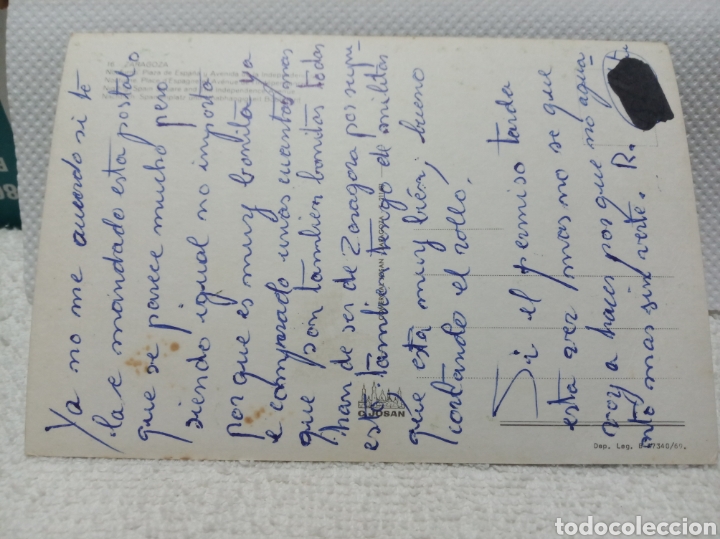 Ya no me acuerdo si te
la e mandado esta postal o
que se parece mucho pero
siendo igual no importa
porque es muy bonita ya
e comprado unas cuantas mas
que son tambien bonitas todas
han de ser de Zaragoza por
esto tambien tengo de militas
que esta muy bien, bueno
cortando el rollo,
Si el permiso tarda
esta vez mas no se que
voy a hacer porque no agua-
nto mas sin verte. R.
ZARAGOZA
JOSAN
Dep. Leg. B
todocoleccion